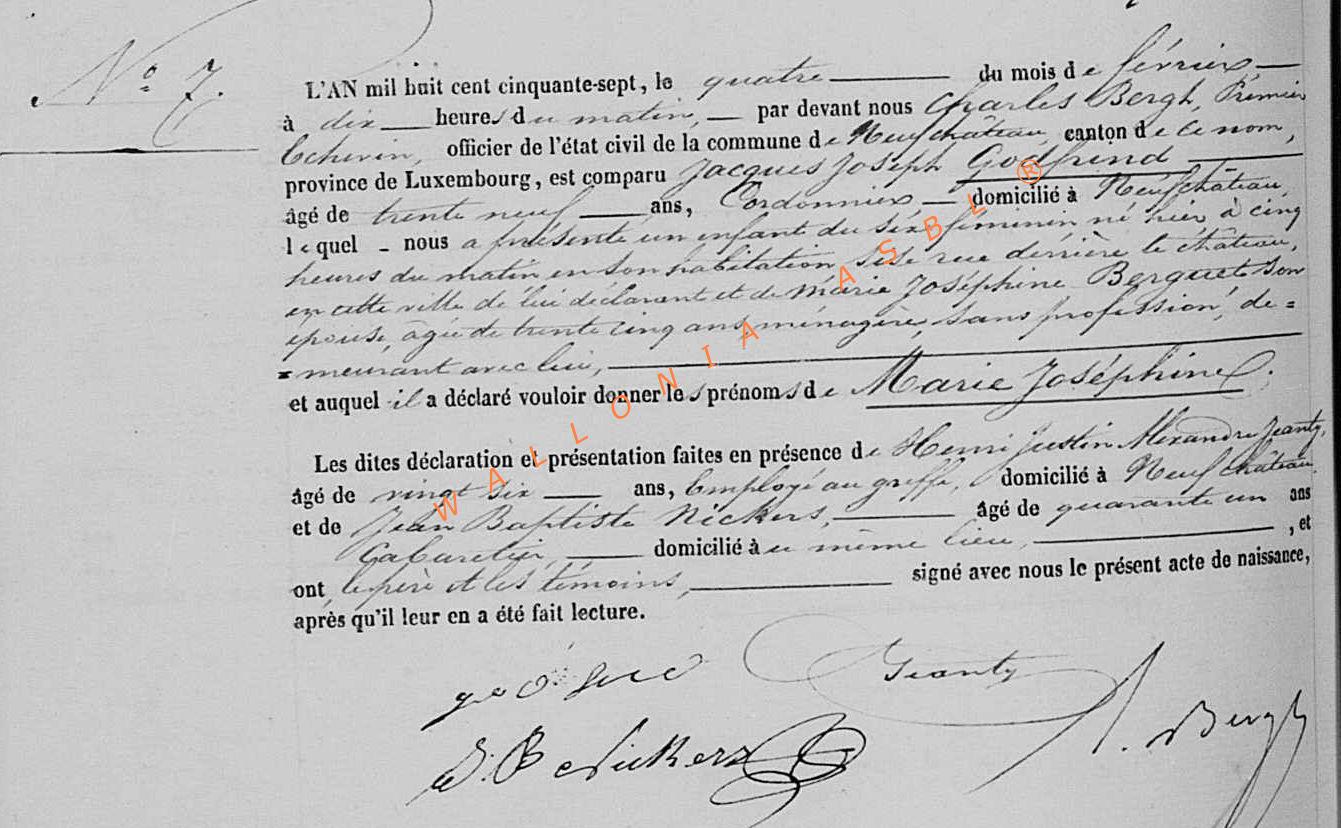 N° 7.
L'AN mil huit cent cinquante-sept, le quatre du mois de février
à dix heures du matin, par devant nous Charles Bergh, Premier
Echevin, officier de l'état civil de la commune de Neufchâteau, canton de ce nom,
province de Luxembourg, est comparu Jacques Joseph Godfrind
âgé de trente neuf ans, Cordonnier domicilié à Neufchâteau,
lequel nous a présenté un enfant du séxe féminin né hier à cinq
heures du matin en son habitation, sise rue derrière le château,
en cette ville de lui déclarant et de Marie Joséphine Berguet son
épouse, agée de trente cinq ans, ménagère, sans profession, de=
=meurant avec lui,
et auquel il a déclaré vouloir donner les prénoms de Marie Joséphine
Les dites déclaration et présentation faites en présence de Henri Justin Alexandre Jeanty,
âgé de vingt six ans, Employé au greffe, domicilié à Neufchâteau
et de Jean Baptiste Nickers, âgé de quarante un ans
Cabaretier, domicilié au même lieu, , et
ont le père et les témoins, signé avec nous le présent acte de naissance,
après qu'il leur en a été fait lecture.
Jeanty
J. B Nickers
Bergh
WALLONIA ASBL ®